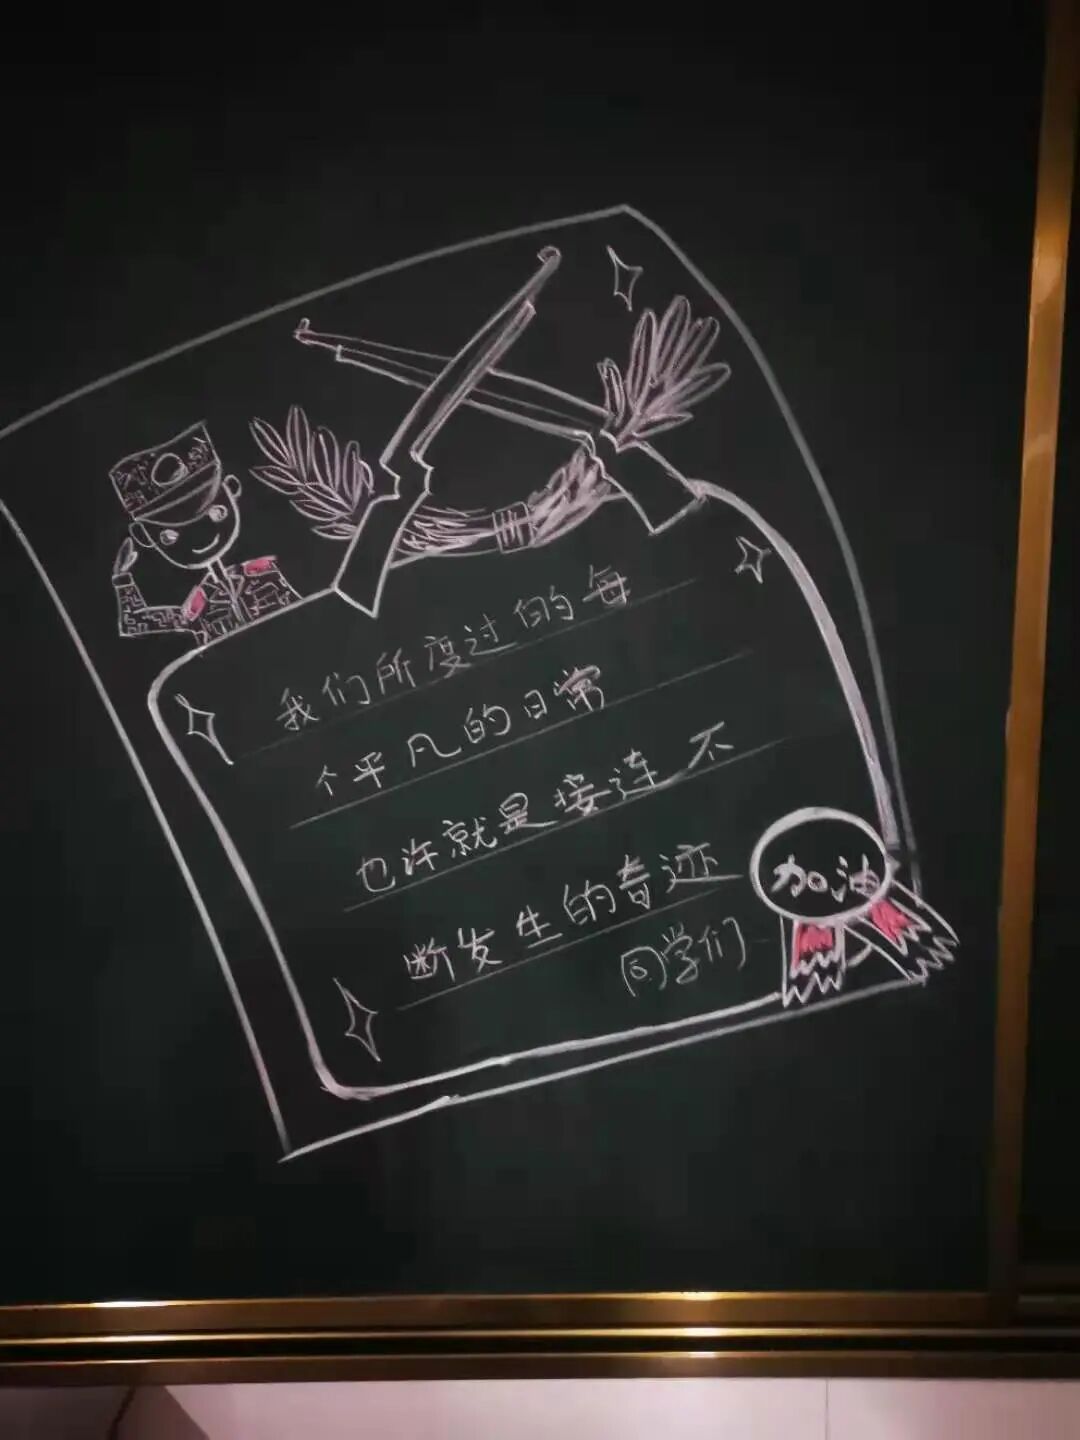 我们所度过的每
个平凡的日常
也许就是接连不
断发生的奇迹
同学们
加油